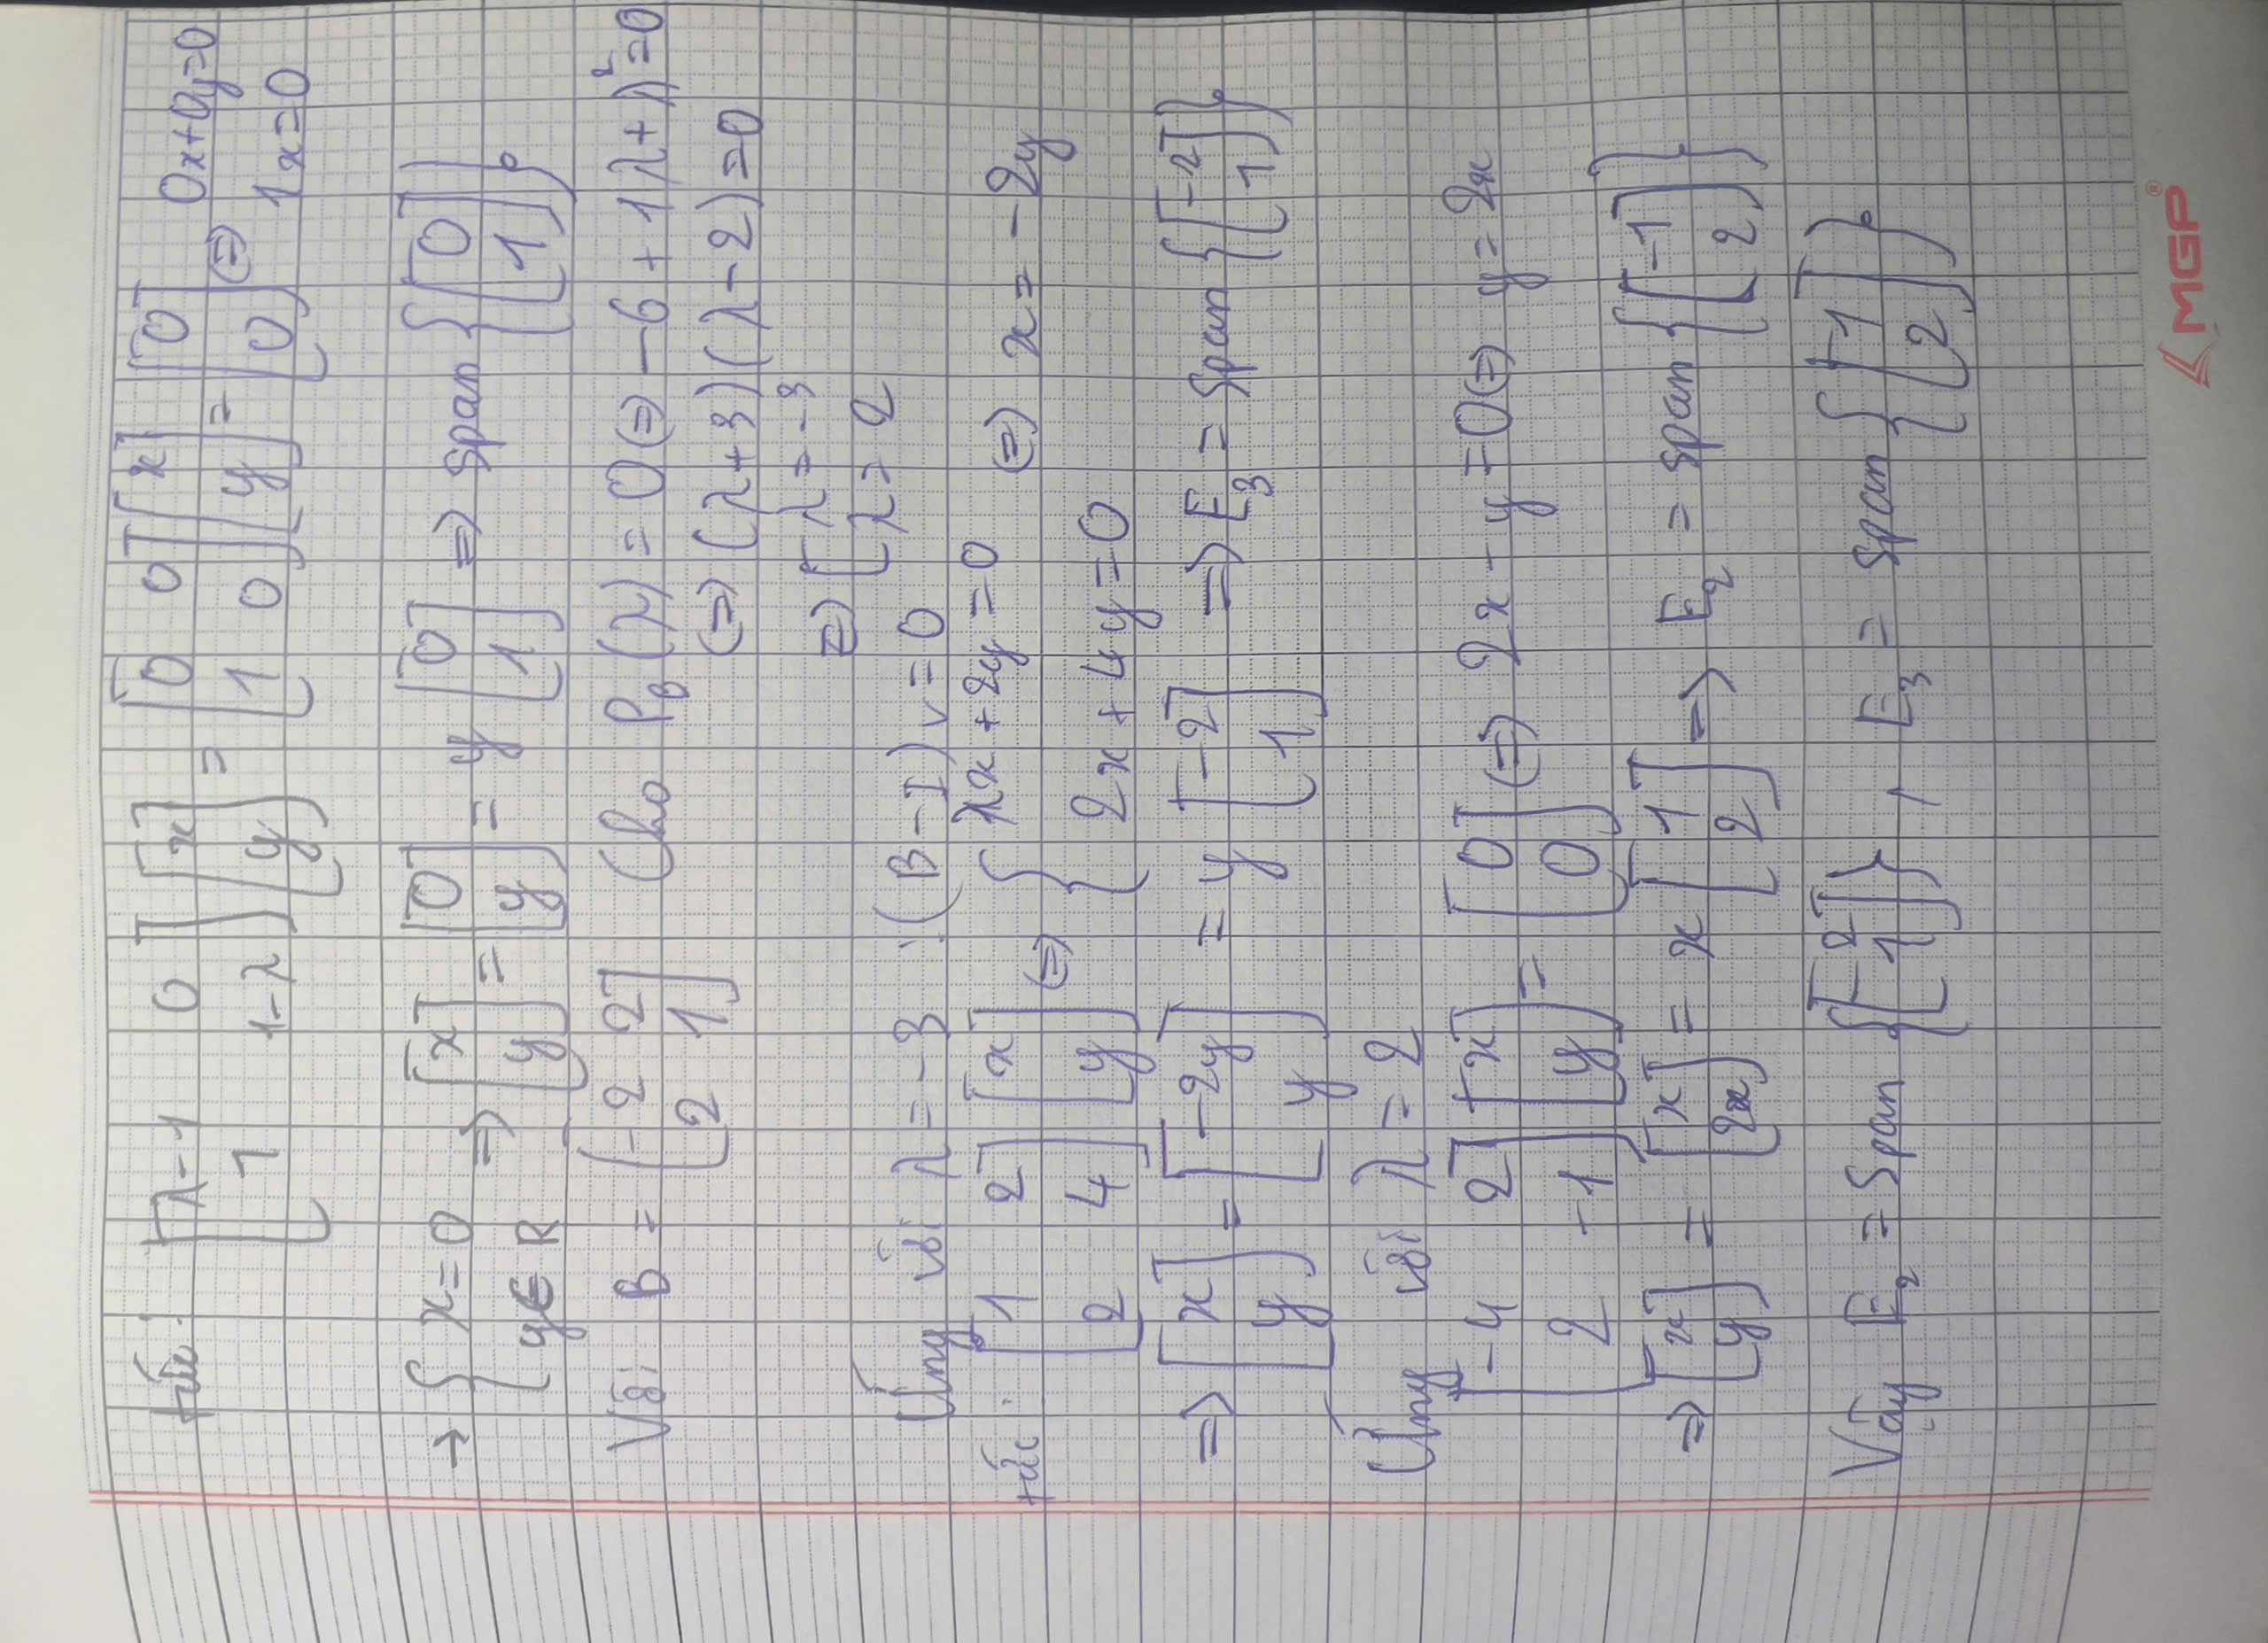 tức: [λ-1 0; 1 1-λ] [x; y] = [0 0; 1 0] [x; y] = [0; 0] (=) 0x+0y=0
1x=0
→ { x=0; y∈R => [x; y] = [0; y] = y [0; 1] => Span {[0; 1]}
Với B = [-2 2; 2 1] Cho P_B(λ) = 0 (=) -6 + 1λ + λ²=0
(=) (λ+3)(λ-2)=0
=> [λ=-3
λ=2
Ứng với λ=-3 : (B-I)v=0
tức: [1 2; 2 4] [x; y] (=) { 1x+2y=0; 2x+4y=0 (=) x=-2y
=> [x; y] = [-2y; y] = y [-2; 1] => E₃ = Span {[-2; 1]}
Ứng với λ=2
[-4 2; 2 -1] [x; y] = [0; 0] (=) 2x-y=0 (=) y=2x
=> [x; y] = [x; 2x] = x [1; 2] => E₂ = span {[-1; 2]}
Vậy E₂ = Span {[-2; 1]}, E₃ = Span {[-1; 2]}
MGP®